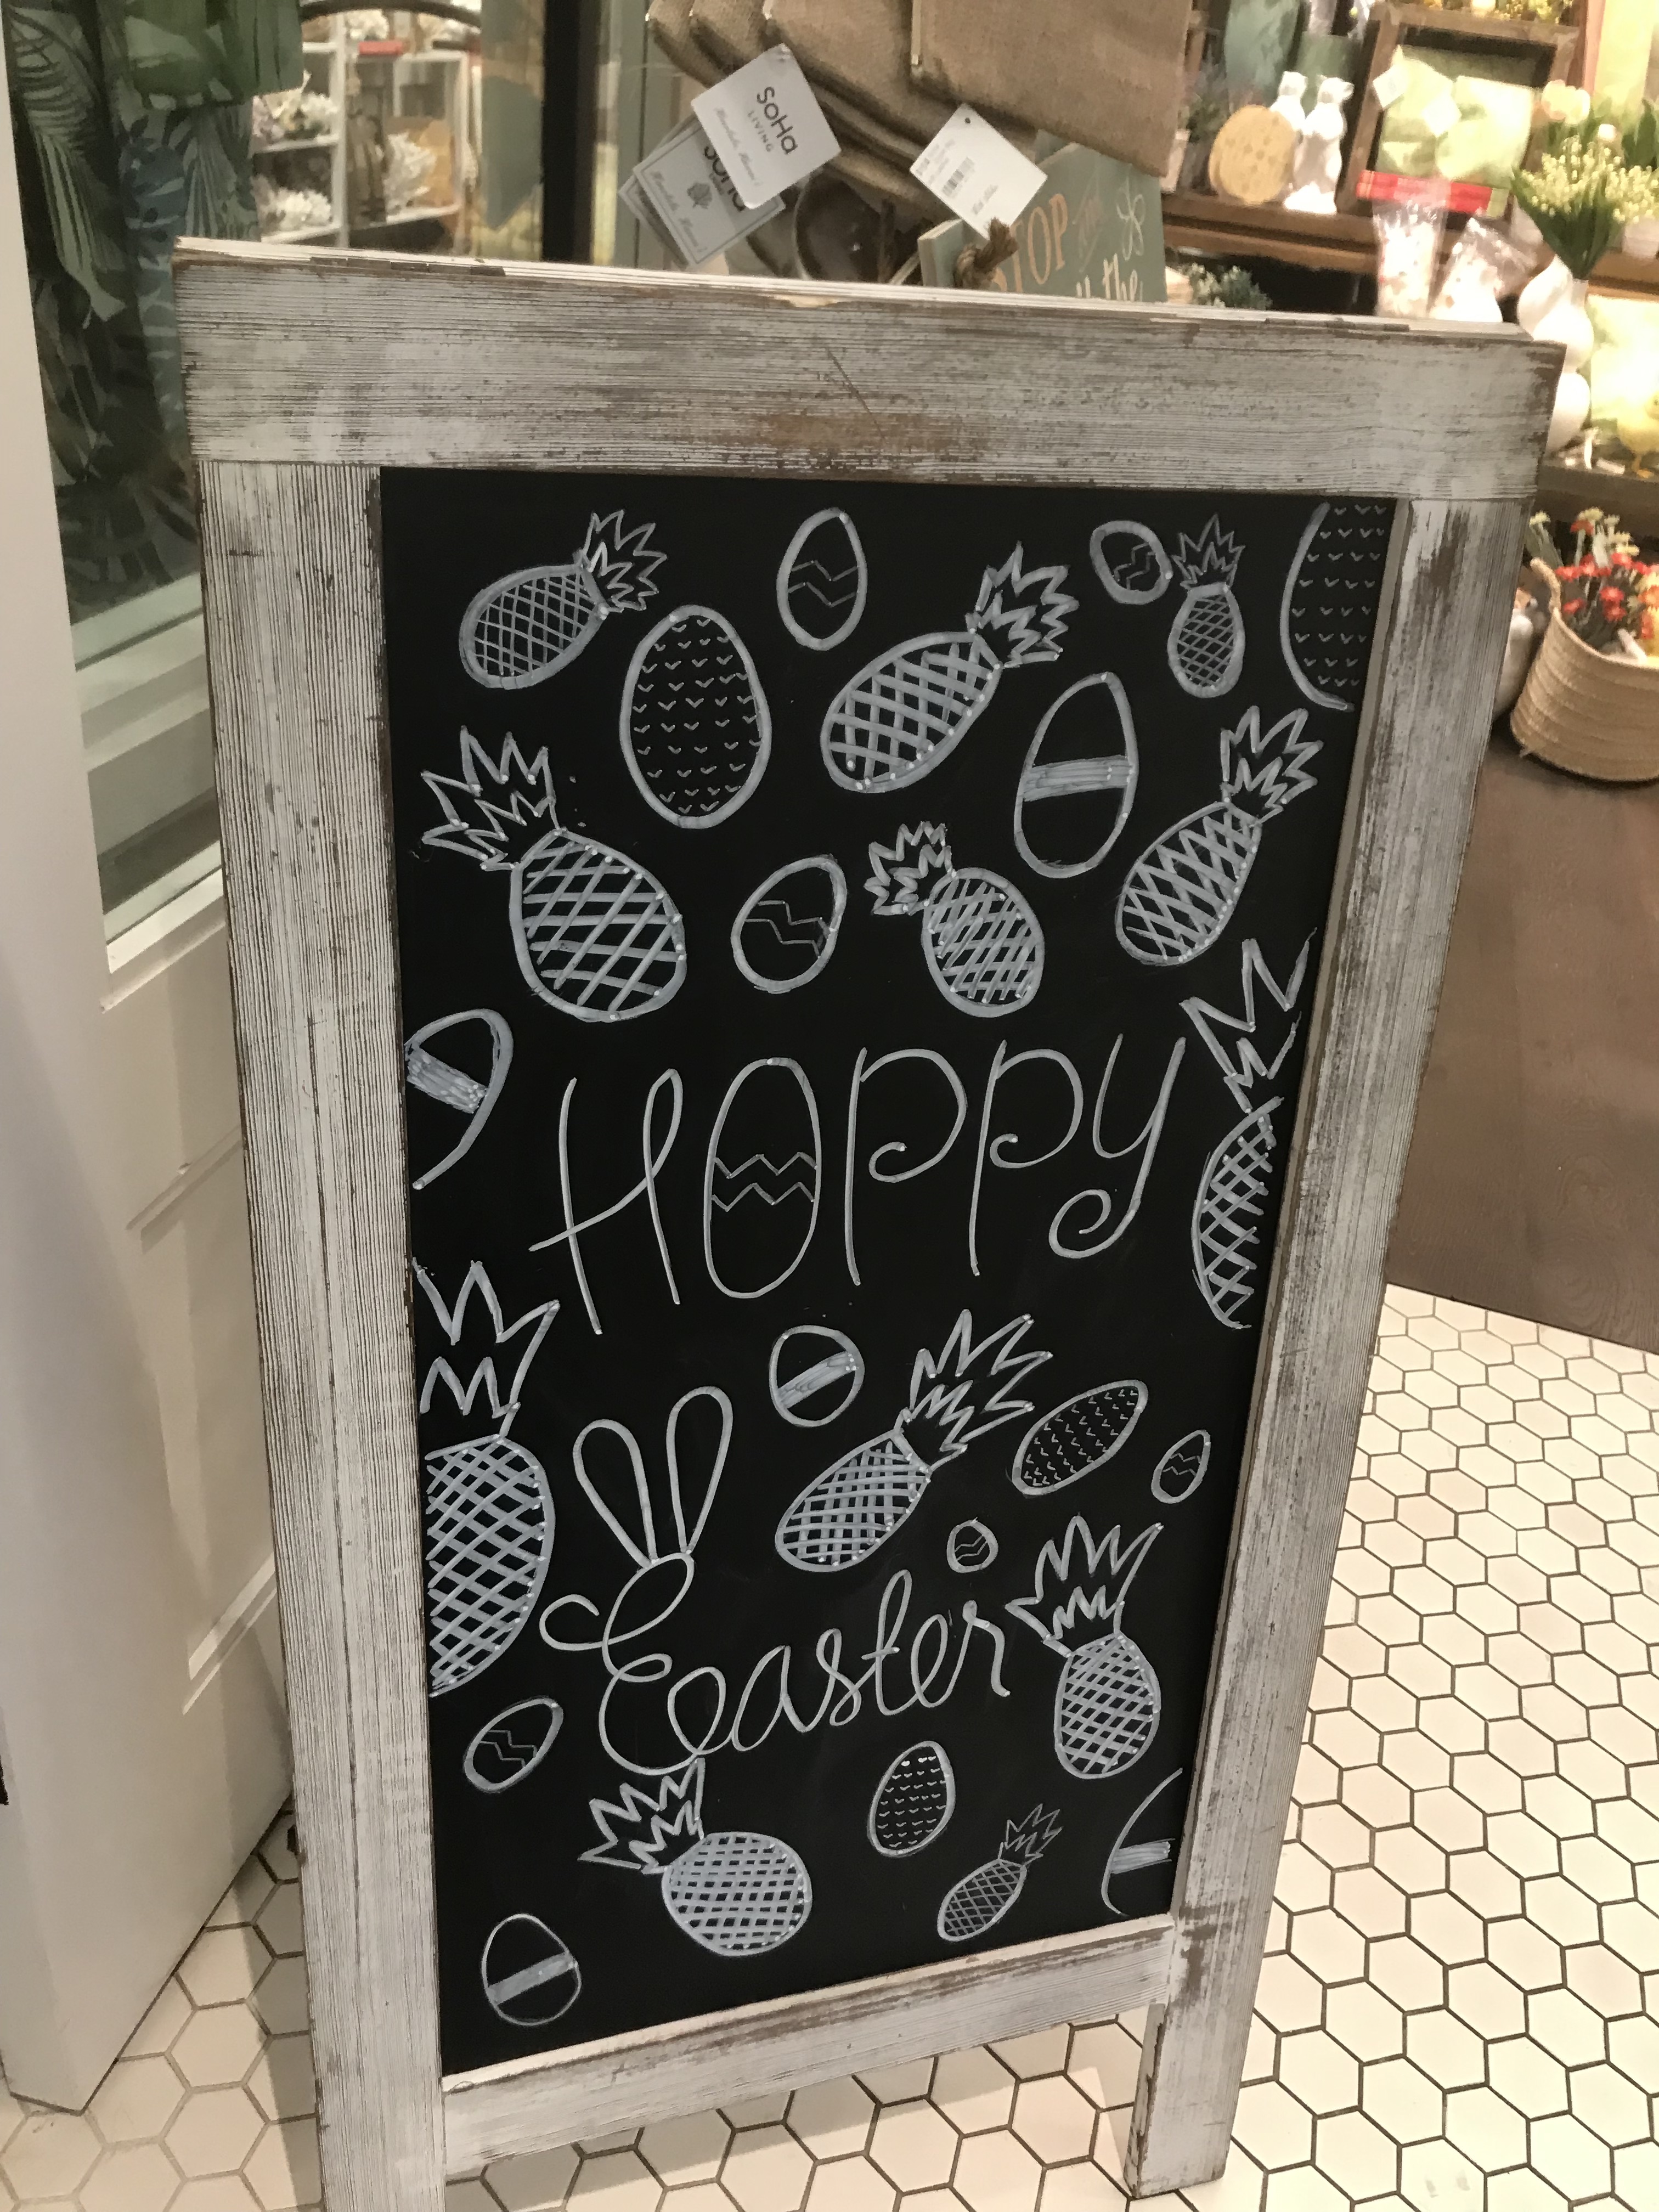 SoHa
LIVING
SoHa
STOP
the
HOPPY
Easter